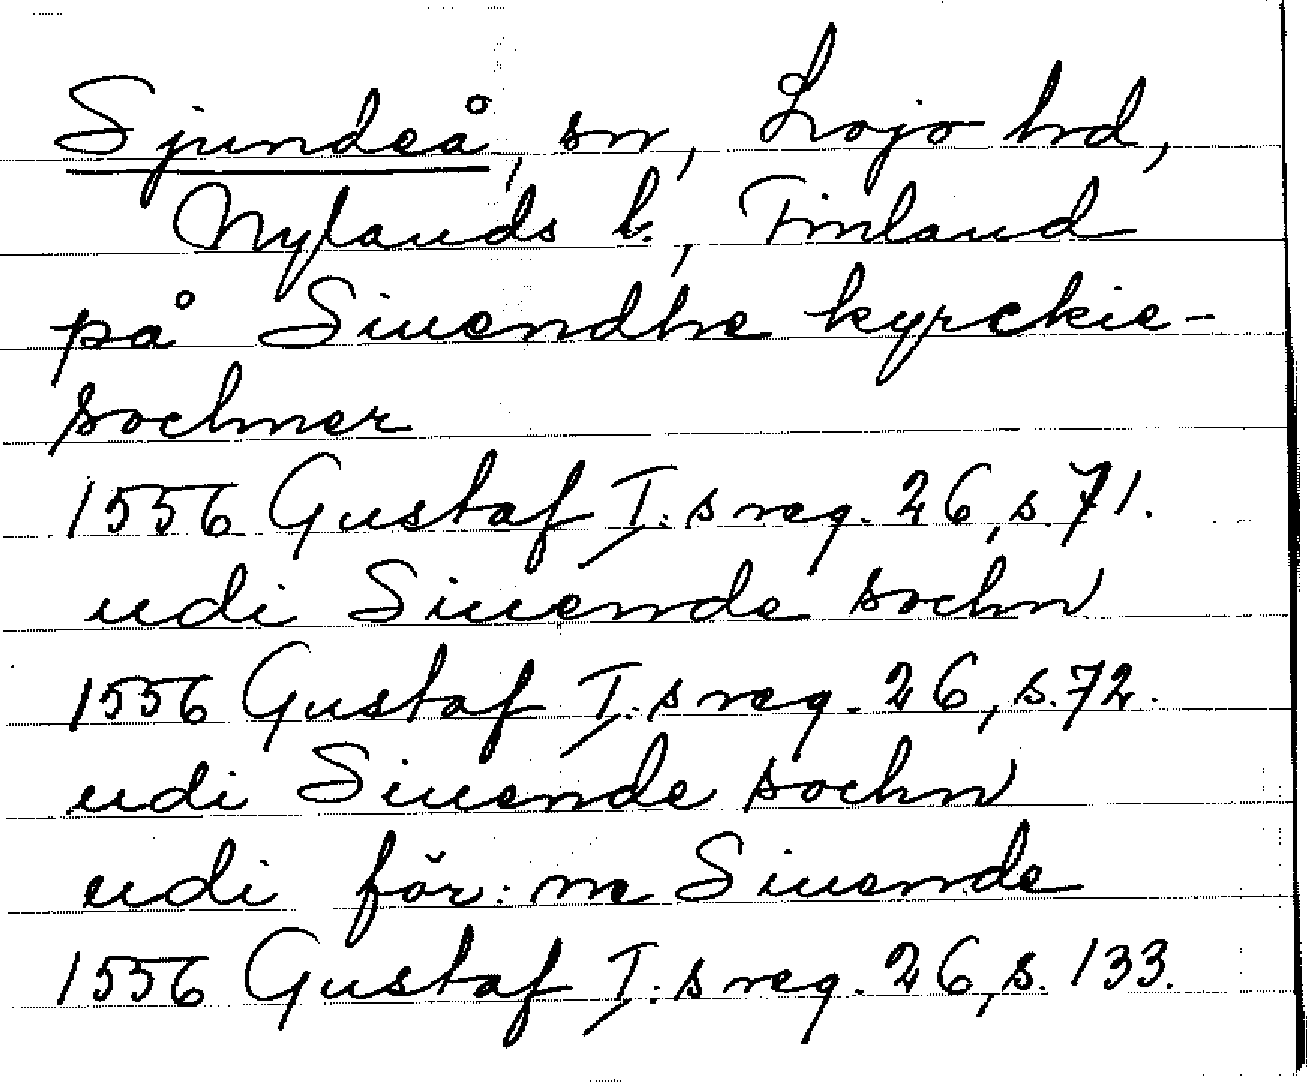 Sjundeå, sn, Lojo hd,
Nylands l., Finland
på Siuendhe kyrckie-
sochner
1556 Gustaf I:s reg. 26, s. 71.
udi Siuende sochn
1556 Gustaf I:s reg. 26, s. 72.
udi Siuende sochn
udi för:ne Siuende
1556 Gustaf I:s reg. 26, s. 133.